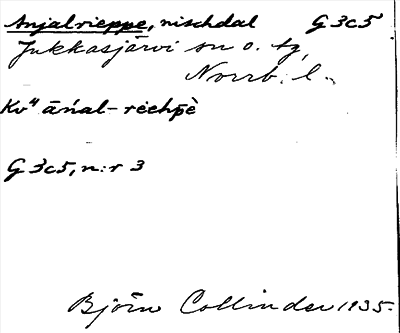 Anjalrieppe, nischdal G 3c5
Jukkasjärvi sn o. tg,
Norrb. l.
Kv" āńal-rèchpè
G 3c5, n:r 3
Björn Collinder 1935.